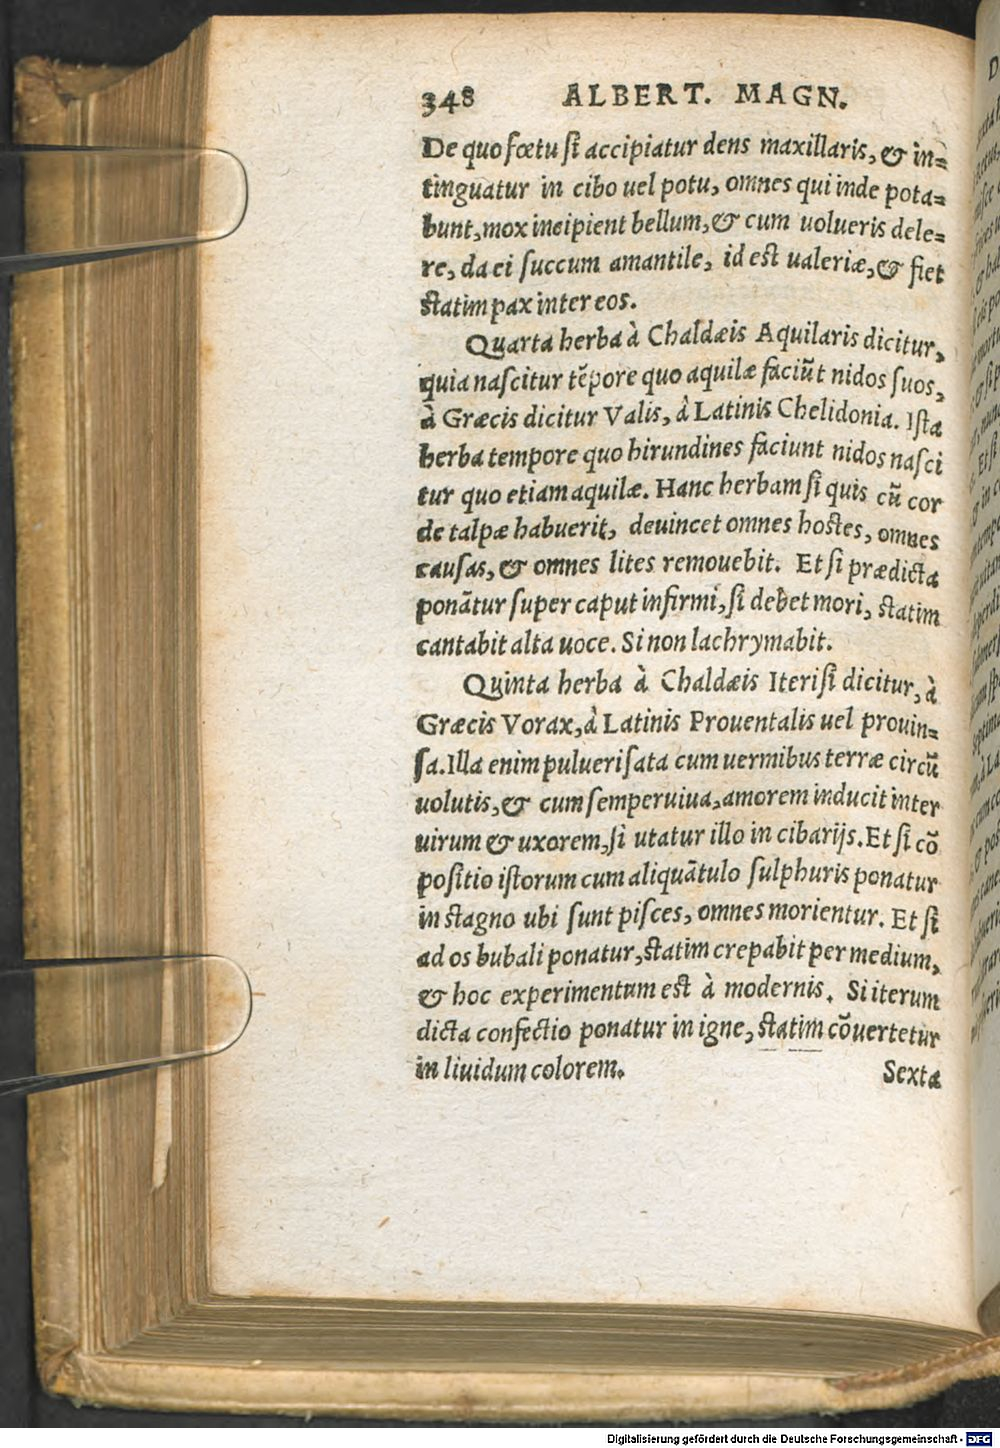 348 ALBERT. MAGN.
De quo fœtu ſi accipiatur dens maxillaris, & in=
tinguatur in cibo uel potu, omnes qui inde pota=
bunt, mox incipient bellum, & cum uolueris dele=
re, da ei ſuccum amantile, id est ualeriæ, & fiet
ſtatim pax inter eos.
Quarta herba à Chaldæis Aquilaris dicitur,
quia naſcitur tẽpore quo aquilæ faciũt nidos ſuos,
à Græcis dicitur Valis, à Latinis Chelidonia. Iſta
herba tempore quo hirundines faciunt nidos naſci
tur quo etiam aquilæ. Hanc herbam ſi quis cũ cor
de talpæ habuerit, deuincet omnes hoſtes, omnes
cauſas, & omnes lites remouebit. Et ſi prædicta
ponãtur ſuper caput infirmi, ſi debet mori, ſtatim
cantabit alta uoce. Si non lachrymabit.
Quinta herba à Chaldæis Iteriſi dicitur, à
Græcis Vorax, à Latinis Prouentalis uel prouin=
ſa. Illa enim pulueriſata cum uermibus terræ circũ
uolutis, & cum ſemperuiua, amorem inducit inter
uirum & uxorem, ſi utatur illo in cibarijs. Et ſi cõ
poſitio iſtorum cum aliquãtulo ſulphuris ponatur
in ſtagno ubi ſunt piſces, omnes morientur. Et ſi
ad os bubali ponatur, ſtatim crepabit per medium,
& hoc experimentum eſt à modernis. Si iterum
dicta confectio ponatur in igne, ſtatim cõuertetur
in liuidum colorem. Sexta
Digitalisierung gefördert durch die Deutsche Forschungsgemeinschaft - DFG